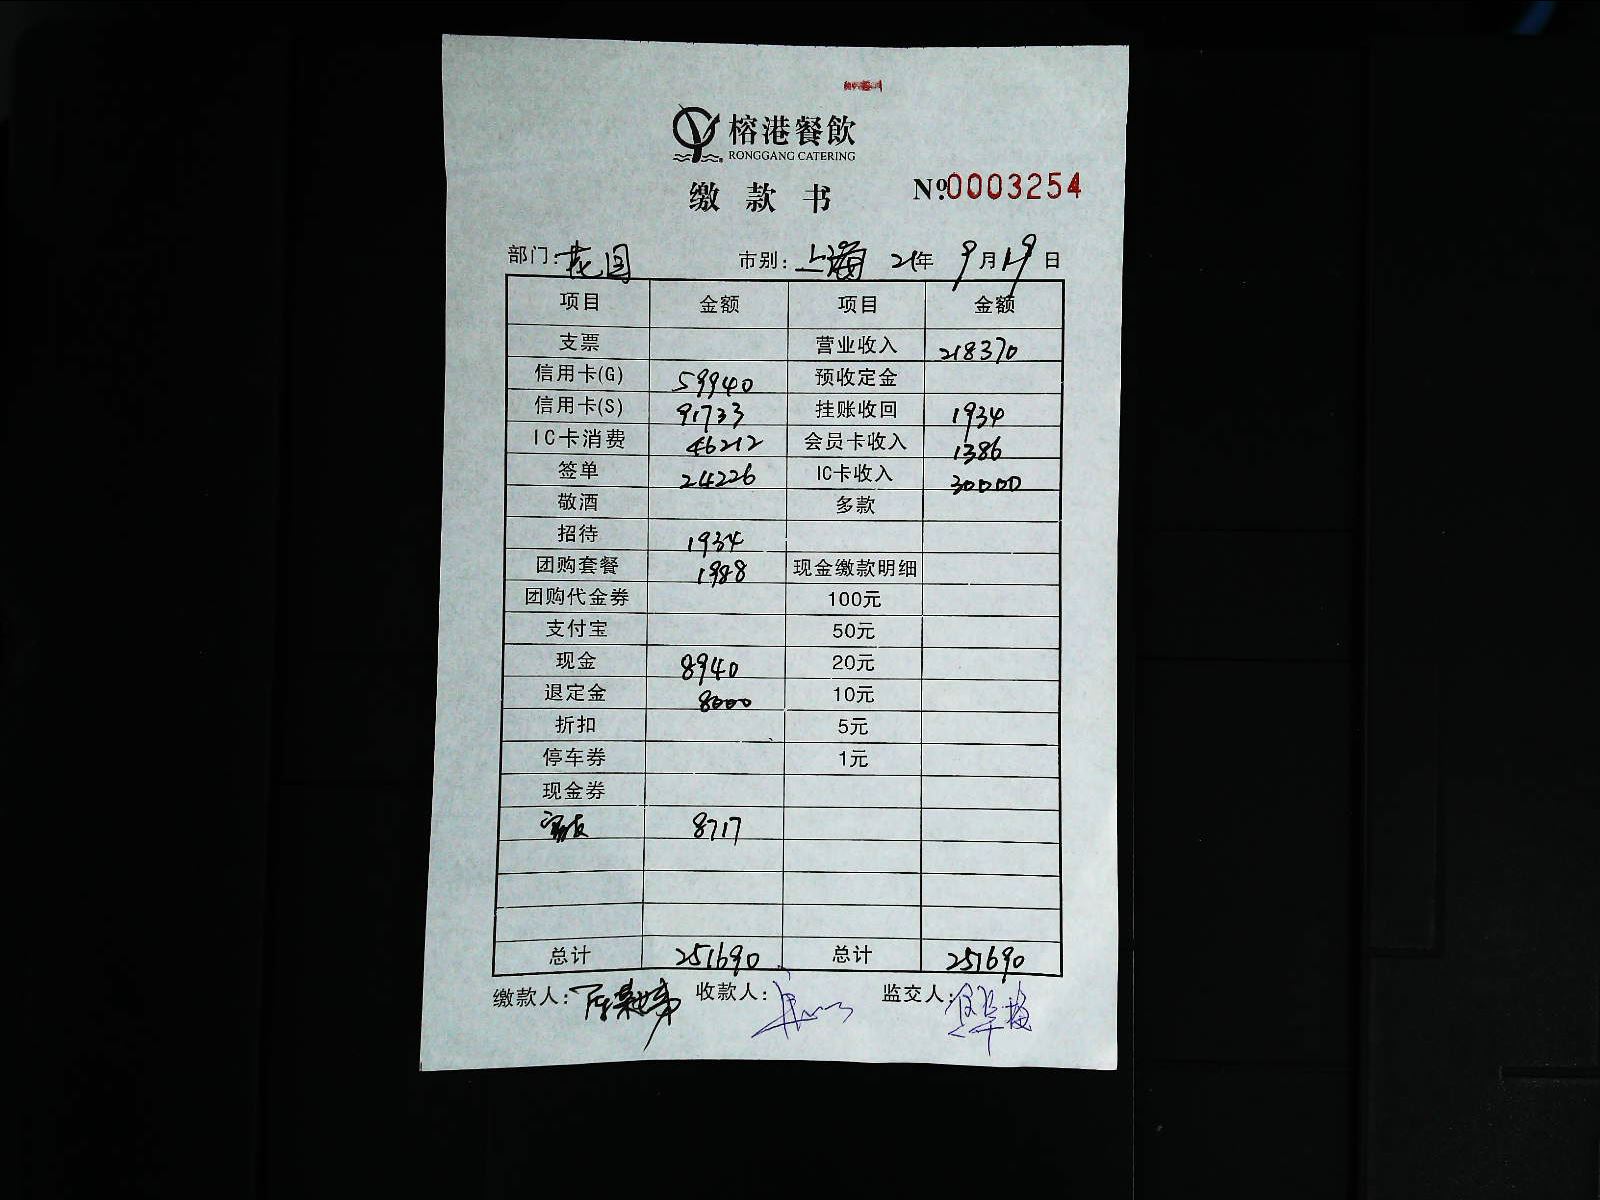 榕港餐飲
RONGGANG CATERING
缴款书 No.0003254
部门:花园 市别:上海 21年9月19日
项目 金额 项目 金额
支票 营业收入 218370
信用卡(G) 59940 预收定金
信用卡(S) 91733 挂账收回 1934
IC卡消费 46212 会员卡收入 1386
签单 24226 IC卡收入 30000
敬酒 多款
招待 1934
团购套餐 1988 现金缴款明细
团购代金券 100元
支付宝 50元
现金 8940 20元
退定金 8000 10元
折扣 5元
停车券 1元
现金券
8717
总计 251690 总计 251690
缴款人: 收款人: 监交人: